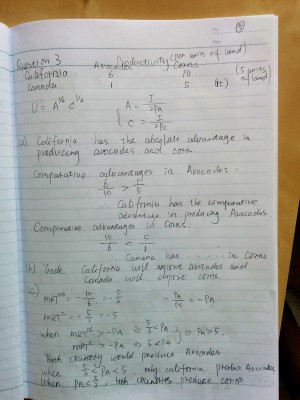 ⑤
Question 3
Productivity (per unit of land)
Avocados Corns
California 6 10
Canada 1 5 (15) (5 units of land)
U = A^{1/2} C^{1/2} { A = I/2PA
C = I/2Pc
a) California has the absolute advantage in
producing avocados and corn.
Comparative advantages in Avocados:
6/10 > 1/5
∴ California has the comparative
advantage in producing Avocados
Comparative advantages in Corn:
10/6 < 5/1
Canana has ........ in Corns
(b) Trade California will export avocados and
Canada will export corns.
(c)
MRT^{US} = -10/6 = -5/3 -PA/Pc = -PA
MRT^{C} = -5/1 = -5
when MRT^{US} > -PA ⇒ 5/3 < PA } ⇒ PA > 5,
MRT^{C} > -PA ⇒ 5 < PA
both country would produce Avocados
when 5/3 < PA < 5, only california produce Avocados
When PA < 5/3, both countries produce corns